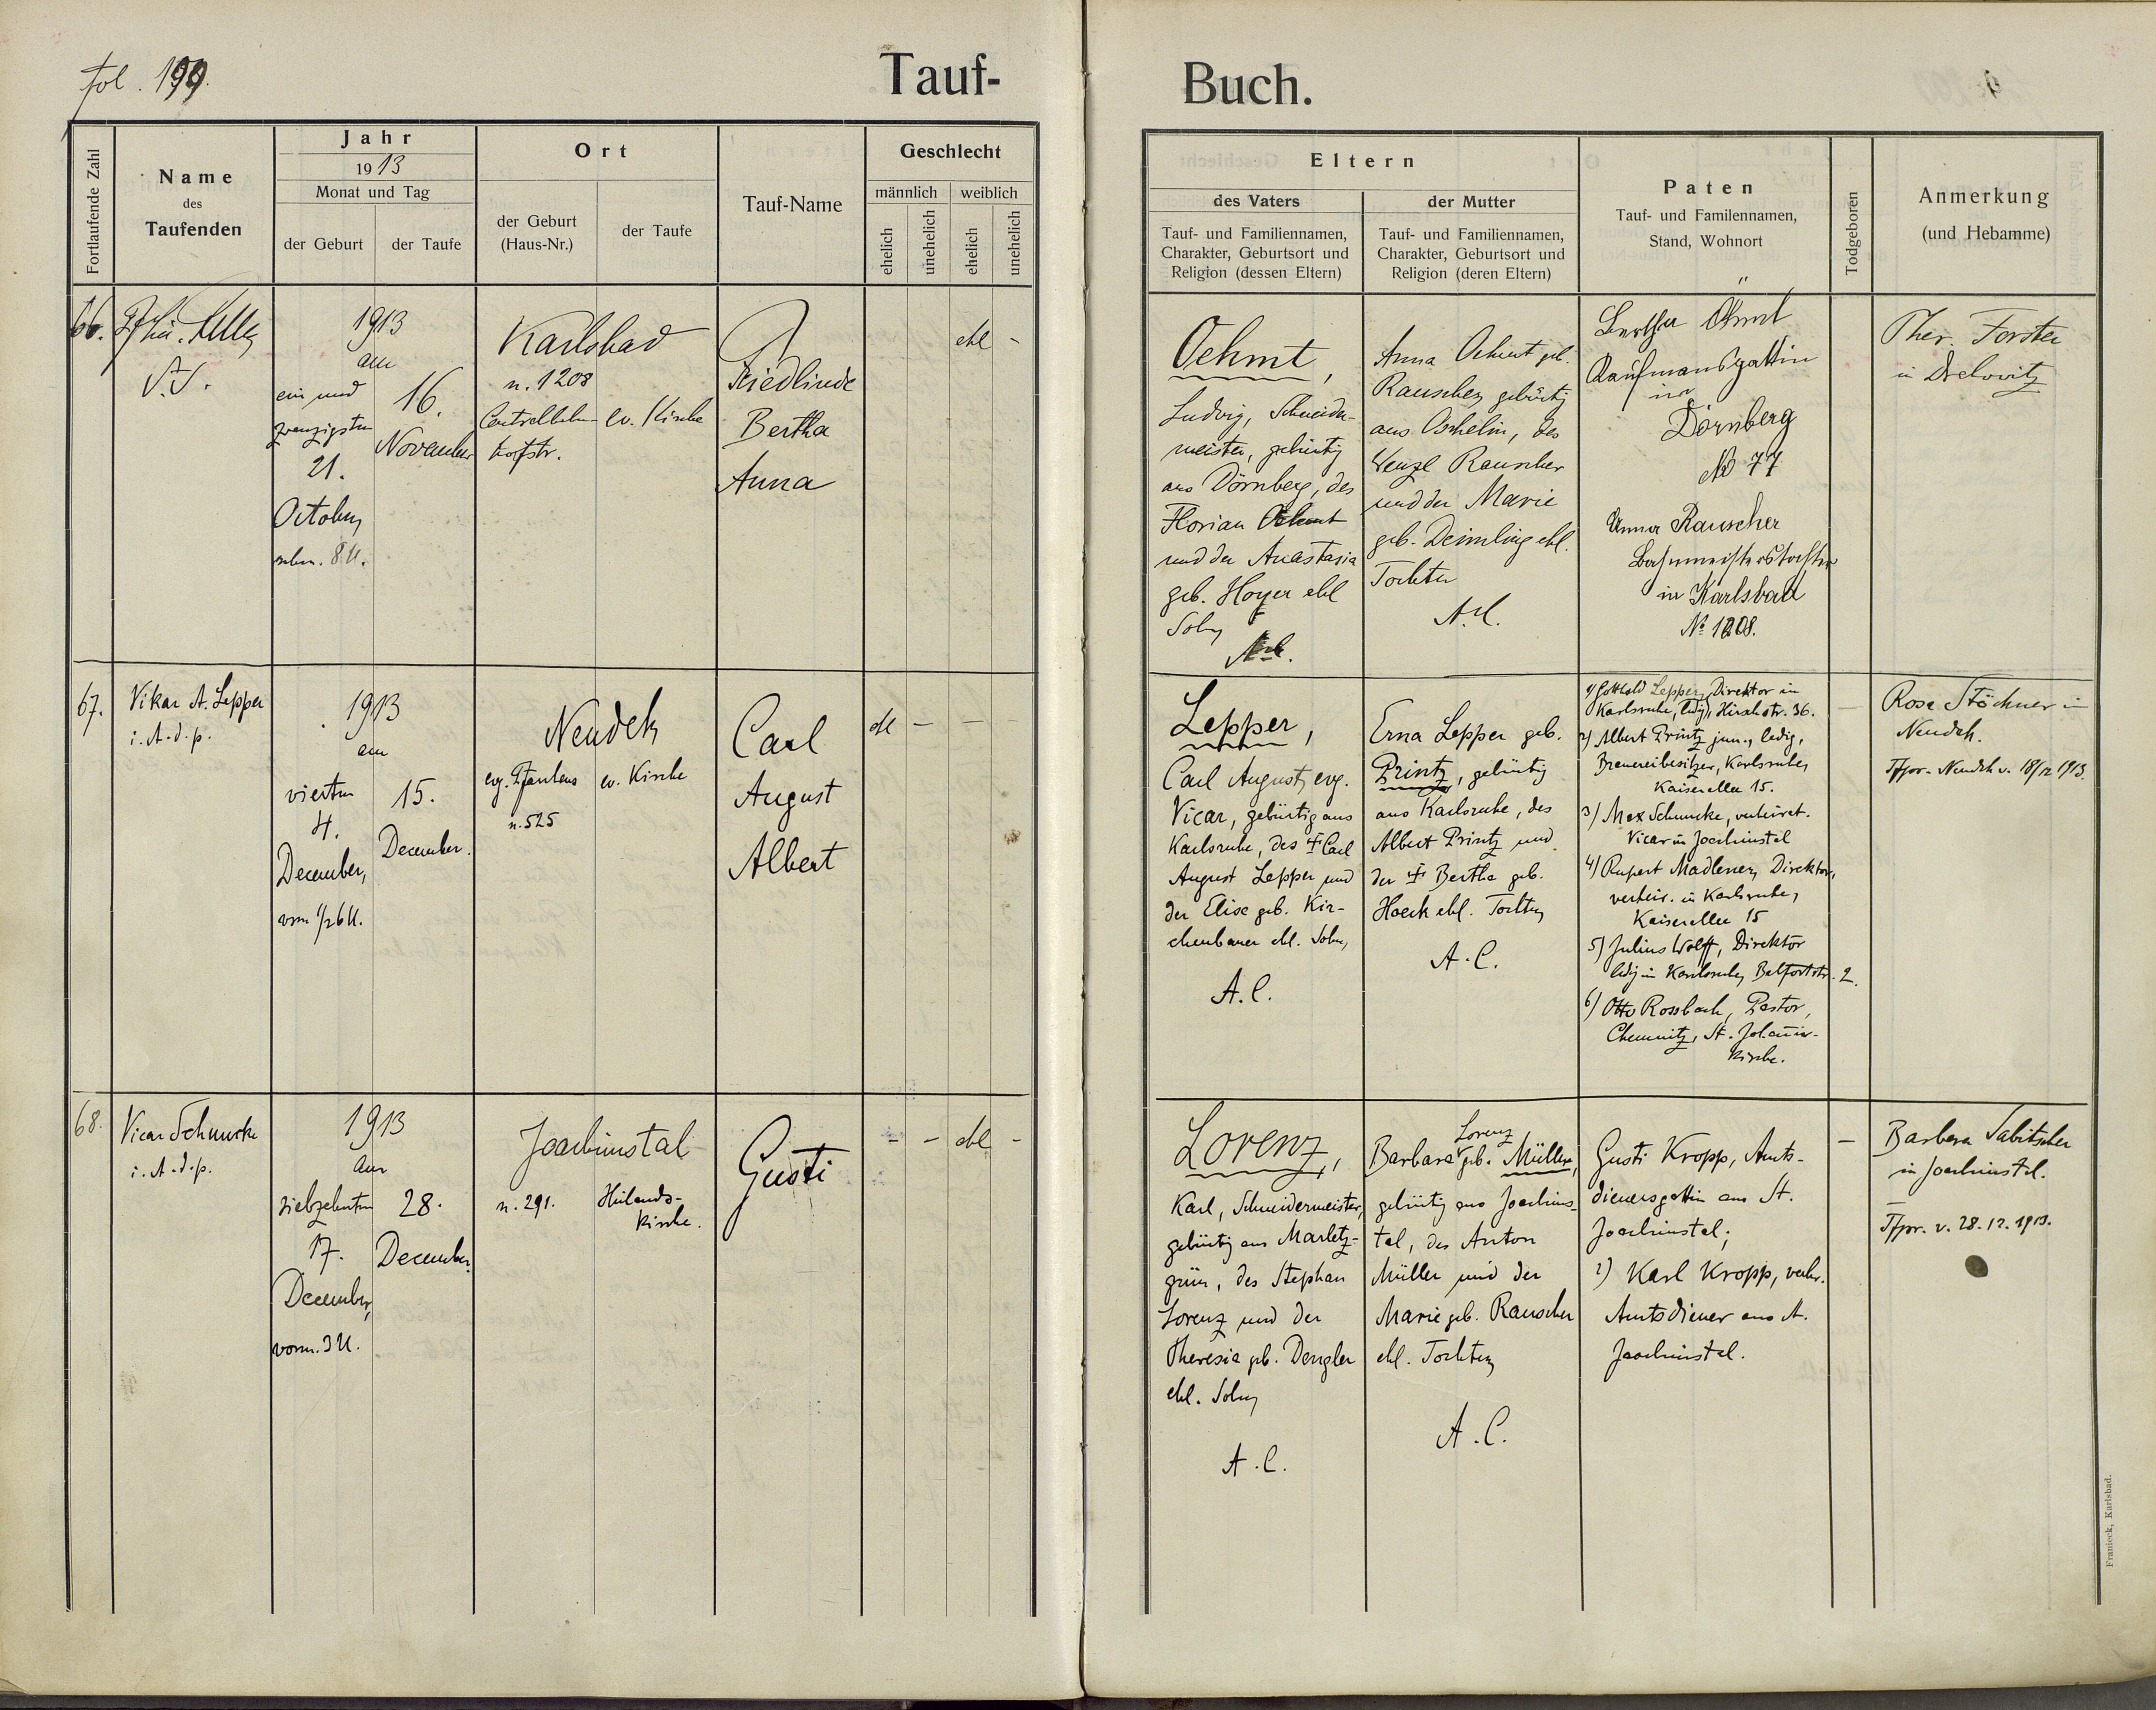 fol. 199.
Tauf-
Fortlaufende Zahl
Name
des
Taufenden
Jahr
1913
Monat und Tag
der Geburt
der Taufe
Ort
der Geburt
(Haus-Nr.)
der Taufe
Tauf-Name
Geschlecht
männlich
weiblich
ehelich
unehelich
ehelich
unehelich
66.
1913
am
ein und
zwanzigsten
21.
October,
8 U.
16.
November
Karlsbad
n. 1208
ev. Kirche
Friedlinde
Bertha
Anna
ehl -
67.
Vikar A. Lepper
i. A. d. p.
1913
am
vierten
4.
December,
vorm 1/2 6 U.
15.
December.
Neudek
evg. Pfarrhaus
n. 525
ev. Kirche
Carl
August
Albert
ehl - -
68.
Vicar Schmucke
i. A. d. p.
1913
am
siebzehnten
17.
December,
vorm. 3 U.
28.
December.
Joachimstal
n. 291.
Heilands-
kirche.
Gusti
- - ehl -
Buch.
Eltern
des Vaters
Tauf- und Familiennamen,
Charakter, Geburtsort und
Religion (dessen Eltern)
der Mutter
Tauf- und Familiennamen,
Charakter, Geburtsort und
Religion (deren Eltern)
Paten
Tauf- und Familennamen,
Stand, Wohnort
Todgeboren
Anmerkung
(und Hebamme)
Oehmt,
Ludwig, Schneider-
meister, gebürtig
aus Dörnberg, des
Florian Oehmt
und der Anastasia
geb. Hoyer ehl
Sohn
Anna Oehmt geb.
Rauscher, gebürtig
aus Oschelin, des
Wenzl Rauscher
und der Marie
geb. Deimling ehl.
Tochter
Bertha Öhmt
Kaufmansgattin
in
Dörnberg
No 77
Anna Rauscher
in Karlsbad
No 1208.
Ther. Forster
in Drahowitz
Lepper,
Carl August, evg.
Vicar, gebürtig aus
Karlsruhe, des ‡ Carl
August Lepper und
der Elise geb. Kir-
chenbauer ehl. Sohn,
A. C.
Erna Lepper geb.
Printz, gebürtig
aus Karlsruhe, des
Albert Printz und
der ‡ Bertha geb.
Hoeck ehl. Tochter,
A. C.
1) Gotthold Lepper, Direktor in
Karlsruhe, ledig, Hirschstr. 36.
2) Albert Printz jun., ledig,
Brauereibesitzer, Karlsruhe,
Kaiserallee 15.
3) Max Schmucke, verheirat.
Vicar in Joachimstal
4) Rupert Madlener, Direktor,
verheir. in Karlsruhe,
Kaiserallee 15
5) Julius Wolff, Direktor
ledig in Karlsruhe, Belfortstr. 2.
6) Otto Rossbach, Pastor,
Chemnitz, St. Johannis-
kirche.
-
Rosa Stöckner in
Neudek.
Tfpr. Neudek v. 18/12 1913.
Lorenz,
Karl, Schneidermeister,
gebürtig aus Marletz-
grün, des Stephan
Lorenz und der
Theresia geb. Dengler
ehl. Sohn,
A. C.
Lorenz
Barbara geb. Müller,
gebürtig aus Joachims-
tal, des Anton
Müller und der
Marie geb. Rauscher
ehl. Tochter,
A. C.
Gusti Kropp, Amts-
dienersgattin aus St.
Joachimstal;
2) Karl Kropp, verhr.
Amtsdiener aus St.
Joachimstal.
-
Barbara Sabitscher
in Joachimstal.
Tfpr. v. 28. 12. 1913.
Franieck, Karlsbad.